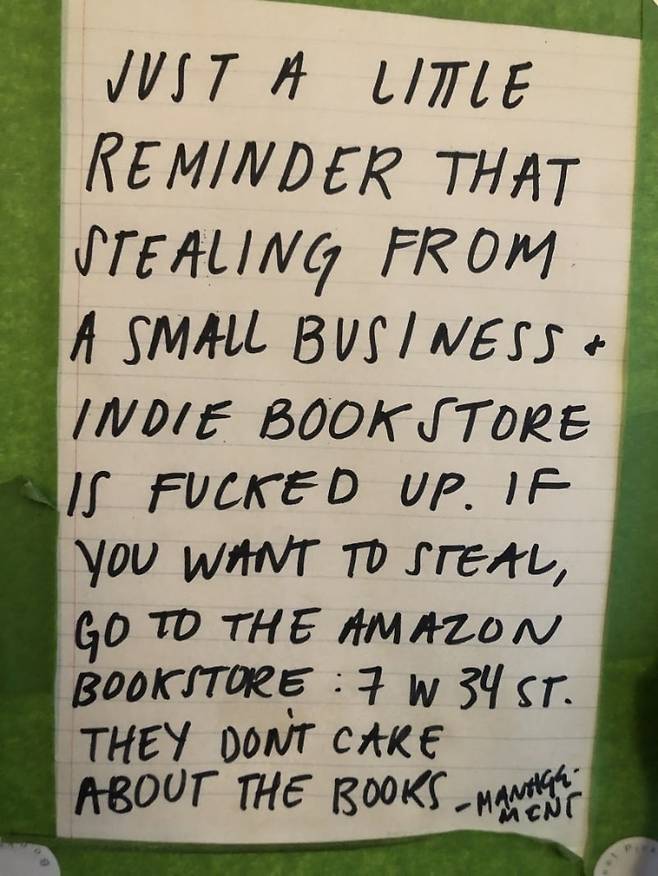 JUST A LITTLE
REMINDER THAT
STEALING FROM
A SMALL BUSINESS +
INDIE BOOKSTORE
IS FUCKED UP. IF
YOU WANT TO STEAL,
GO TO THE AMAZON
BOOKSTORE : 7 W 34 ST.
THEY DON'T CARE
ABOUT THE BOOKS -MANAGE-
MENT